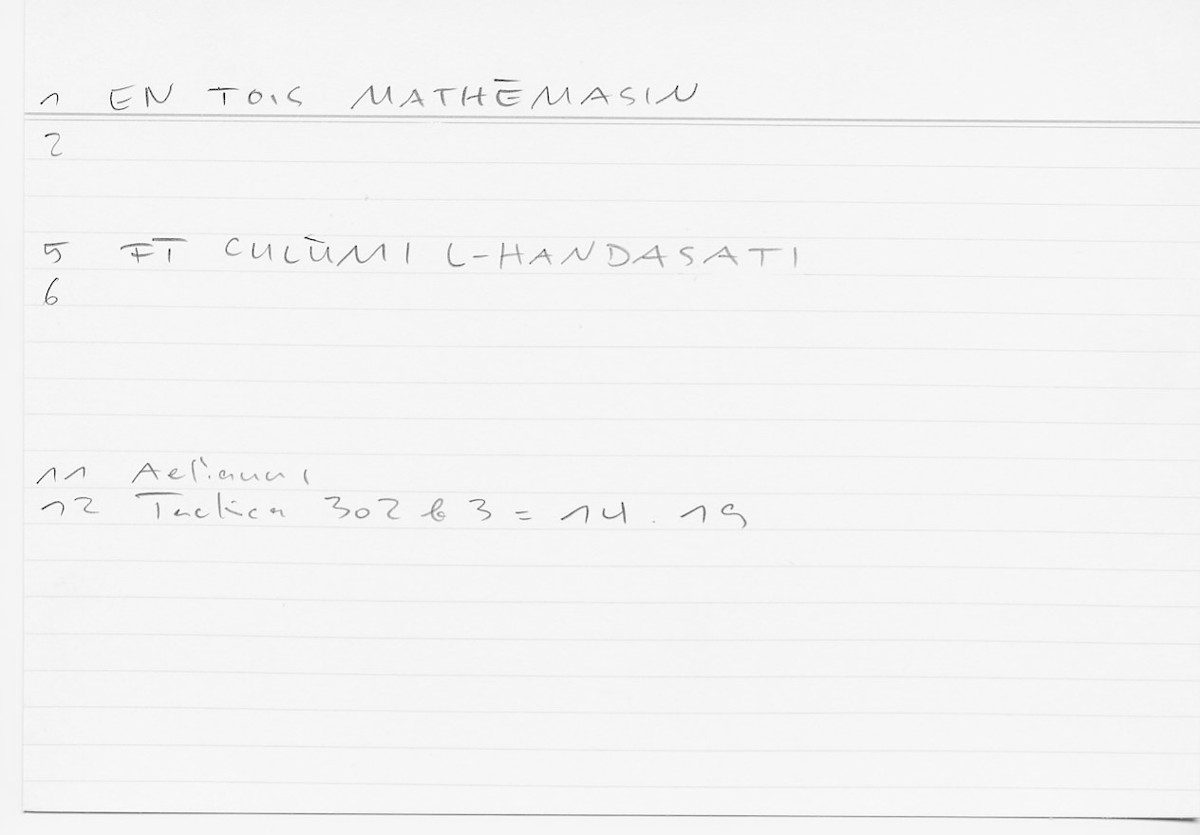 1 EN TOIS MATHĒMASIN
2
5 FĪ CULŪMI L-HANDASATI
6
11 Aelianus
12 Tactica 302 b 3 = 14.19